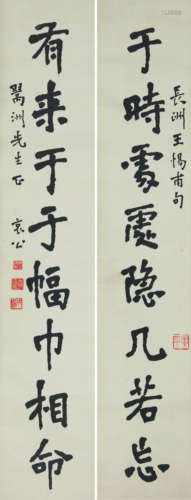 于時處處隐几若忘
長洲王惕甫句
有来于于幅巾相命
洲先生正
公